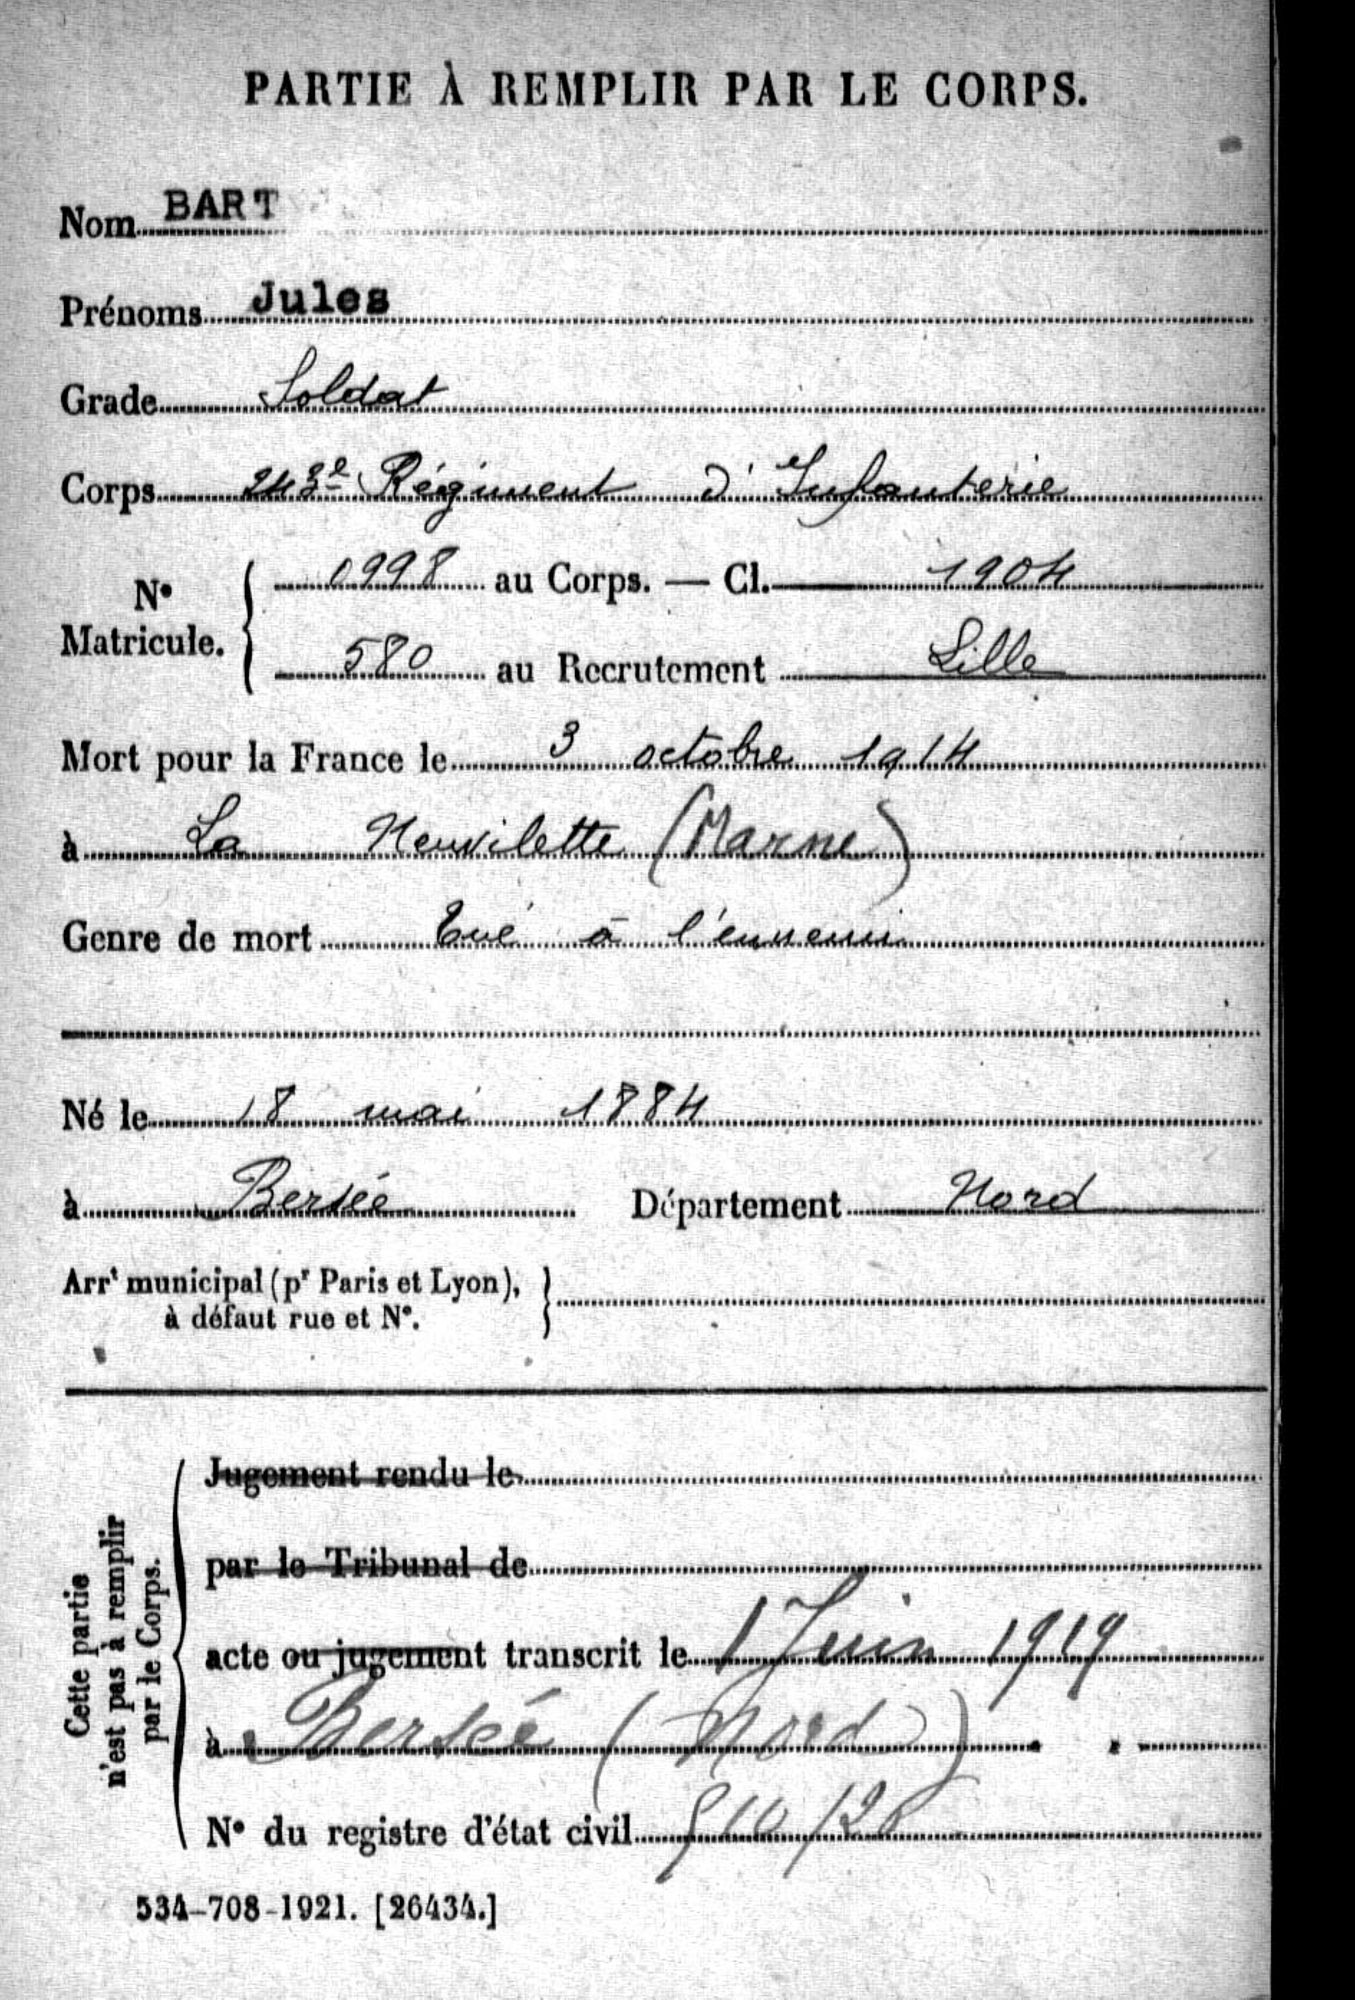 PARTIE À REMPLIR PAR LE CORPS.
Nom BART
Prénoms Jules
Grade Soldat
Corps 243e Régiment d'Infanterie
No Matricule. { 0998 au Corps. — Cl. 1904
580 au Recrutement Lille
Mort pour la France le 3 octobre 1914
à La Neuvilette (Marne)
Genre de mort Tué à l'ennemi
Né le 18 mai 1884
à Bersée Département Nord
Arrt municipal (pr Paris et Lyon),
à défaut rue et No.
Cette partie
n'est pas à remplir
par le Corps.
Jugement rendu le
par le Tribunal de
acte ou jugement transcrit le 1 Juin 1919
à Bersée (Nord)
No du registre d'état civil
534-708-1921. [26434.]